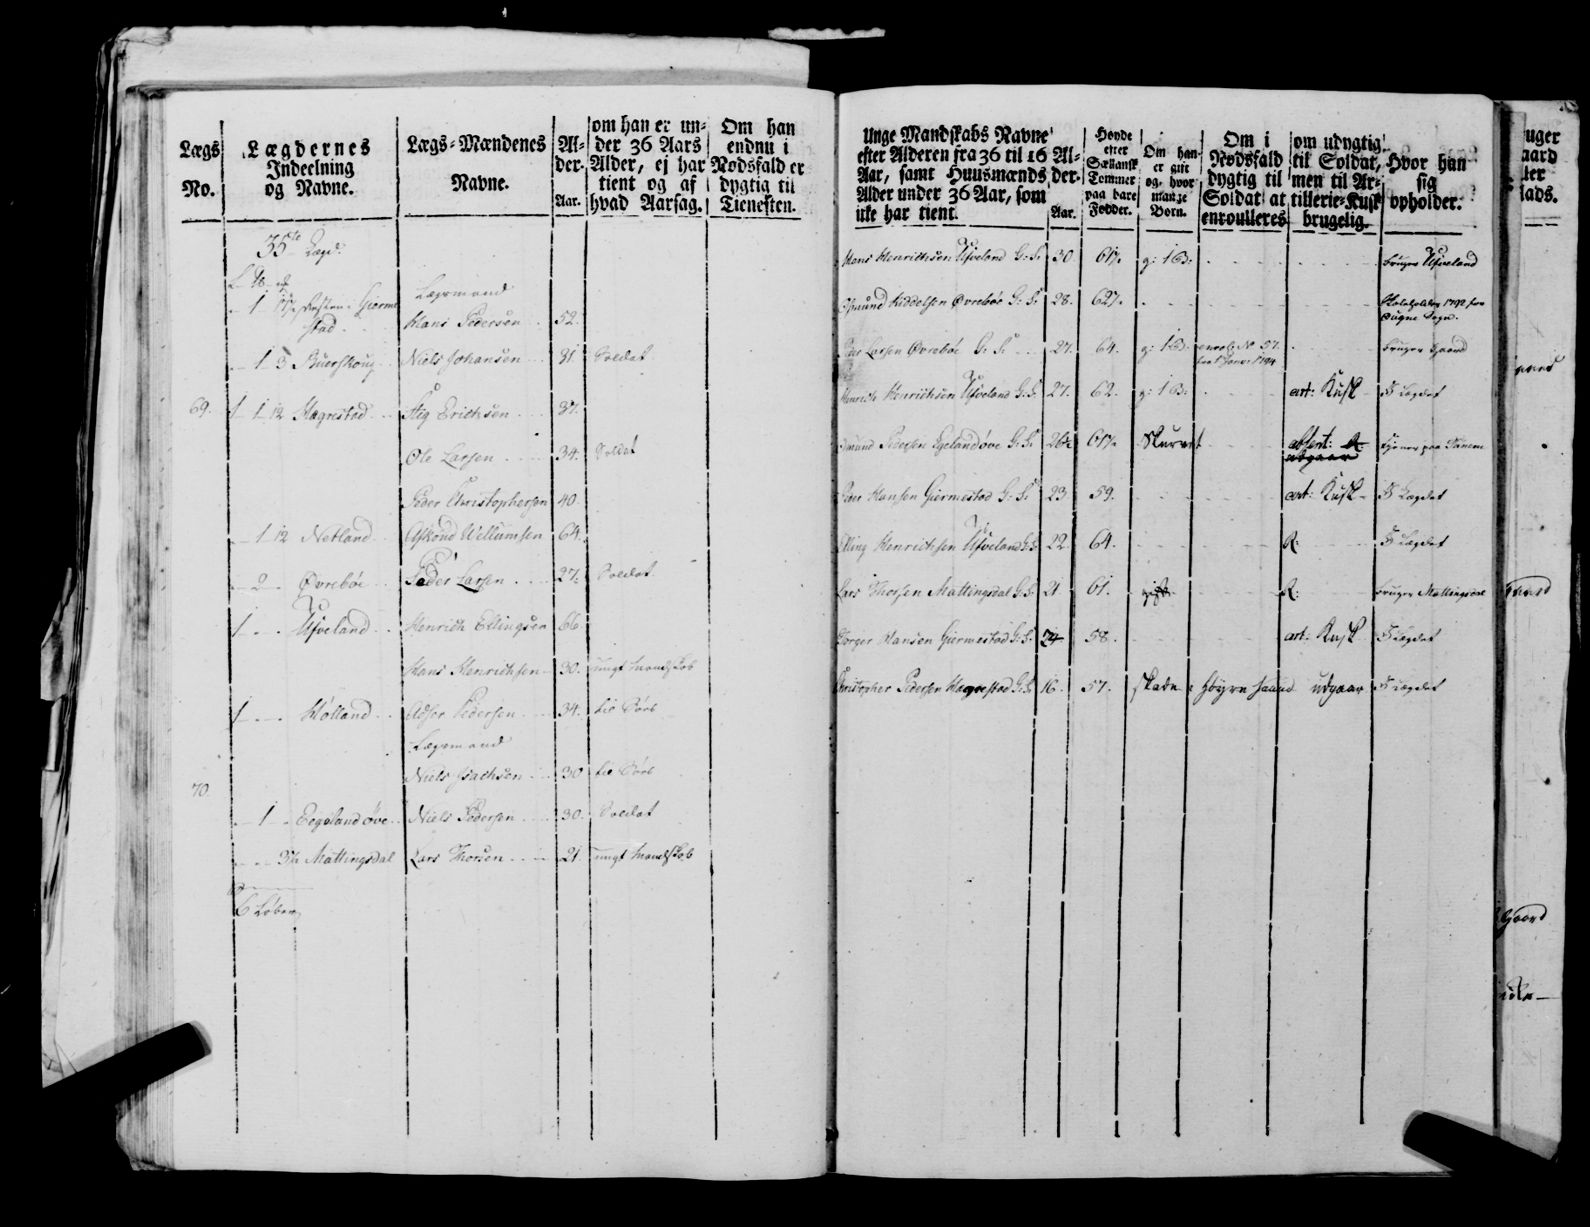 Lægs No.
Lægdernes Indeelning og Navne.
Lægs-Mændenes Navne.
Al-der. Aar.
om han er un-der 36 Aars Alder, ej har tient og af hvad Aarsag.
Om han endnu i Nødsfald er dygtig til Tienesten.
35te Lægd.
Lægsmand
stad Hans Pedersen 52.
1 3 Niels Johansen 31 Soldat
69. 1 1 12 Hagrestad Stig Erichsen 37.
Ole Larsen 34. Soldat
Peder Christophersen 40
1 12 Netland Willumsen 64.
2 Øvrebøe Peder Larsen 27. Soldat
1 Ufveland Henrich Ellingsen 66.
Hans Henrichsen 30. ungt Mandskab
1 Hølland Pedersen 34.
Lægsmand
70. Niels Isachsen 30
1 Eegelandøve Niels Pedersen 30. Soldat
3/4 Mattingsdal Lars Thorsen 21 ungt Mandskab
6 Løber
Unge Mandskabs Navne efter Alderen fra 36 til 16 Aar, samt Huusmænds Alder under 36 Aar, som ikke har tient.
Al-der. Aar.
Høyde efter Sællansk Tommer paa bare Fødder.
Om han er gift og hvor mange Børn.
Om i Nødsfald dygtig til Soldat at enroulleres
om udygtig til Soldat, men til Ar-tillerie-Kusk brugelig.
Hvor han sig opholder.
Hans Henrichsen Ufveland G: S: 30 g: 1 B: bruger Ufveland
Øvrebøe G: S: 28. 62 1792 fra
Sogn.
Peder Larsen Øvrebøe G: S: 27. 64. g: 1 B: No 57. bruger Gaard
1794
Henrich Henrichsen Ufveland G: S: 27. 62. g: 1 B: art: Kusk I Lægdet
Pedersen Egelandøve G: S: Skurvet absent: R: tjener paa
udgaar
Peder Hansen Giermestad G: S: 23 59. art: Kusk I Lægdet
Elling Henrichsen Ufveland G: S: 22 64. R: I Lægdet
Lars Thorsen Mattingsdal G: S: 21 61. gift R: bruger Mattingsdal
Torger Hansen Giermestad G: S: 58. art: Kusk I Lægdet
Christopher Pedersen Hagrestad G: S: 16. 57. skade i høyre haand udgaar I Lægdet
uger
aard
ller
lads.
Gaard